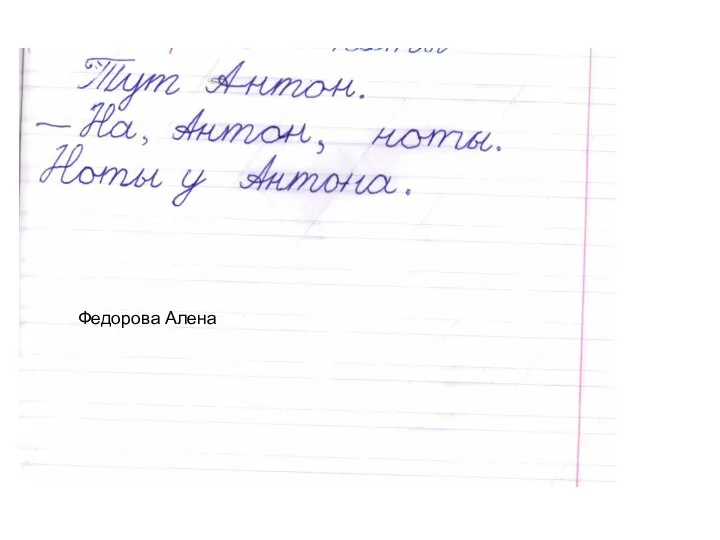 Тут Антон.
— На, Антон, ноты.
Ноты у Антона.
Федорова Алена